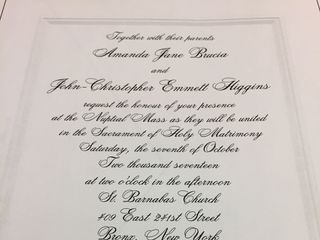 Together with their parents
Amanda Jane Brucia
and
John-Christopher Emmett Higgins
request the honour of your presence
at the Nuptial Mass as they will be united
in the Sacrament of Holy Matrimony
Saturday, the seventh of October
Two thousand seventeen
at two o'clock in the afternoon
St. Barnabas Church
409 East 241st Street
Bronx, New York